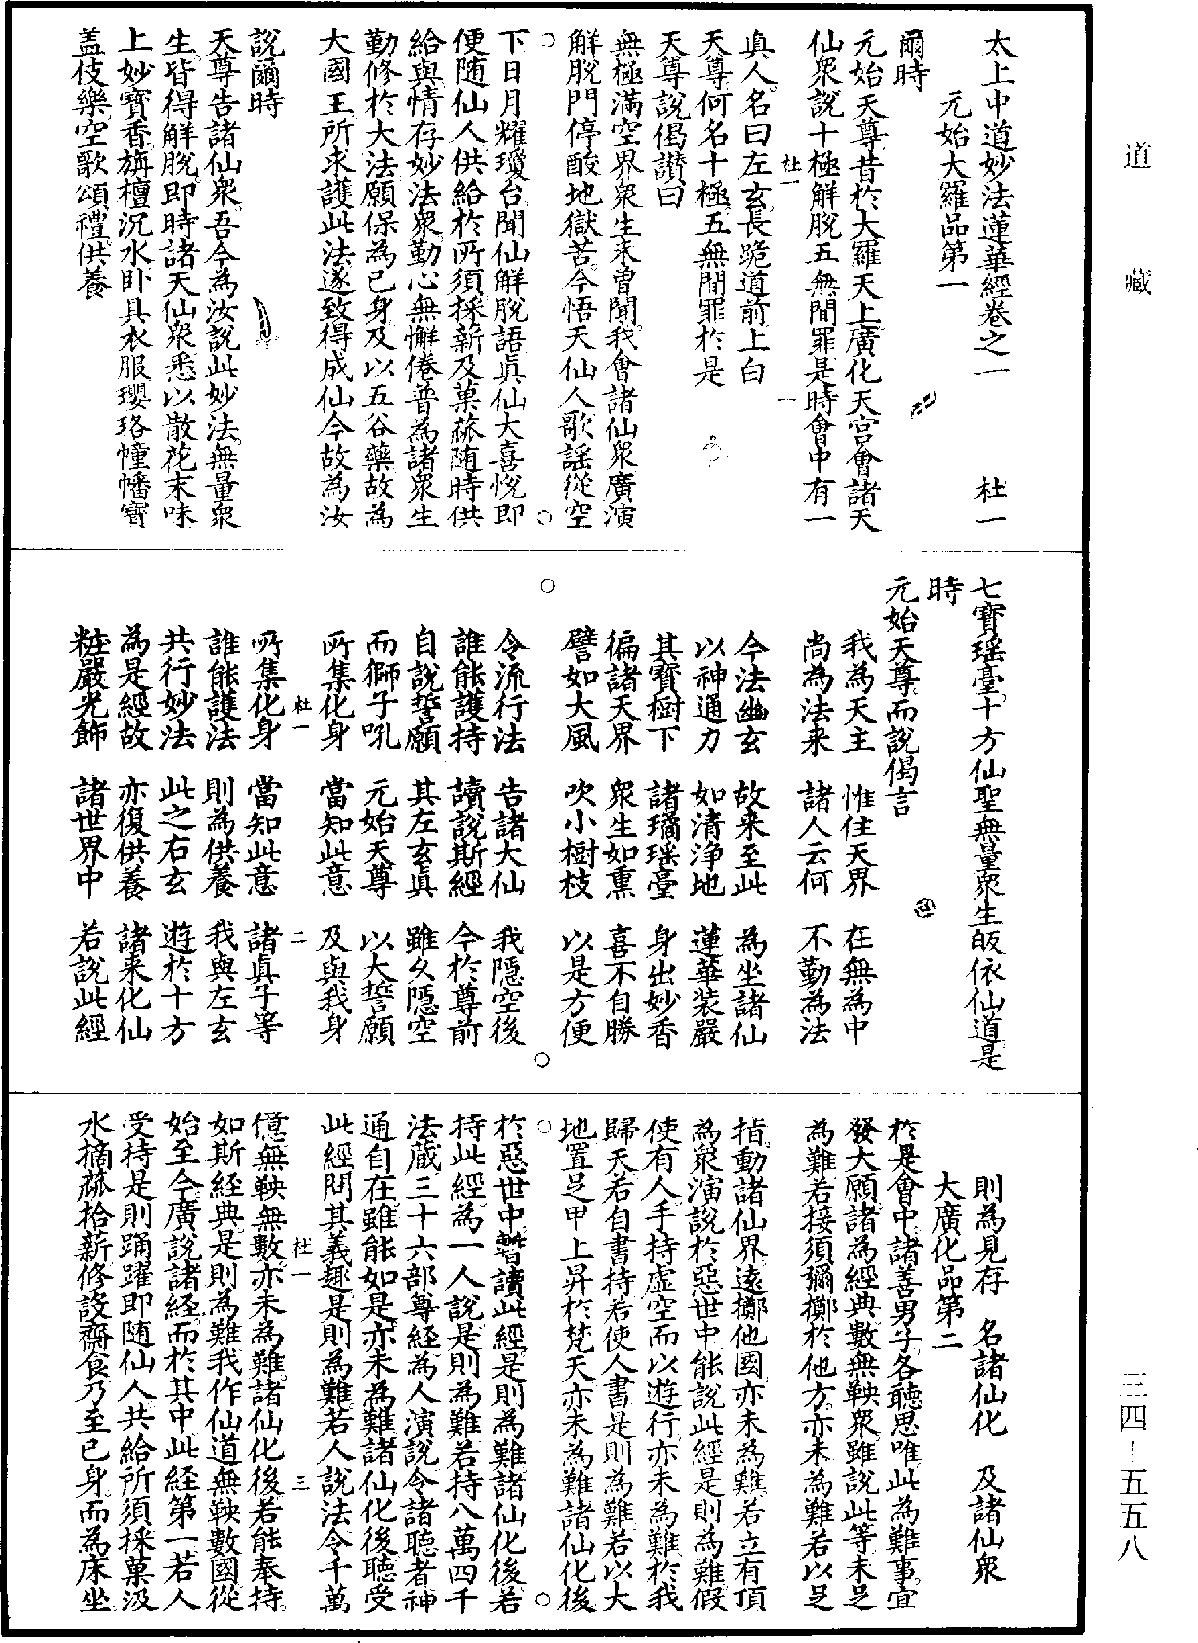 道藏
三四-五五八
太上中道妙法蓮華經卷之一　杜一
元始大羅品第一
爾時
元始天尊昔於大羅天上廣化天宮會諸天
仙衆說十極解脫五無間罪是時會中有一
杜一　一
真人名曰左玄長跪道前上白
天尊何名十極五無間罪於是
天尊說偈讚曰
無極滿空界衆生未曾聞我會諸仙衆廣演
解脫門停酸地獄苦今悟天仙人歌謡從空
下日月耀瓊台聞仙解脫語真仙大喜悅即
便随仙人供給於所須採薪及菓蓏随時供
給與情存妙法衆勤心無懈倦普為諸衆生
勤修於大法願保為已身及以五谷藥故為
大國王所求護此法遂致得成仙今故為汝
說爾時
天尊告諸仙衆吾今為汝說此妙法無量衆
生皆得解脫即時諸天仙衆悉以散花末味
上妙寶香旃檀沉水卧具衣服瓔珞幢幡寶
盖伎樂空歌頌禮供養
七寶瑶臺十方仙聖無量衆生皈依仙道是
時
元始天尊而說偈言
我為天主　惟住天界　在無為中
尚為法来　諸人云何　不勤為法
今法幽玄　故来至此　為坐諸仙
以神通力　如清淨地　蓮華装嚴
其寶樹下　諸璚瑶臺　身出妙香
徧諸天界　衆生如熏　喜不自勝
譬如大風　吹小樹枝　以是方便
令流行法　告諸大仙　我隱空後
誰能護持　讀說斯經　今於尊前
自說誓願　其左玄真　雖久隱空
而獅子吼　元始天尊　以大誓願
所集化身　當知此意　及與我身
杜一　二
所集化身　當知此意　諸真子等
誰能護法　則為供養　我與左玄
共行妙法　此之右玄　遊於十方
為是經故　亦復供養　諸来化仙
粧嚴光飾　諸世界中　若說此經
則為見存　名諸仙化　及諸仙衆
大廣化品第二
於是會中諸善男子各聽思唯此為難事宜
發大願諸為經典數無鞅衆雖說此等未足
為難若接須彌擲於他方亦未為難若以足
指動諸仙界遠擲他國亦未為難若立有頂
為衆演說於惡世中能說此經是則為難假
使有人手持虚空而以遊行亦未為難於我
歸天若自書持若使人書是則為難若以大
地置足甲上昇於梵天亦未為難諸仙化後
於惡世中暫讀此經是則為難諸仙化後若
持此經為一人說是則為難若持八萬四千
法藏三十六部尊經為人演說令諸聽者神
通自在雖能如是亦未為難諸仙化後聽受
此經問其義趣是則為難若人說法令千萬
杜一　三
億無鞅無數亦未為難諸仙化後若能奉持
如斯經典是則為難我作仙道無鞅數國從
始至今廣說諸經而於其中此經第一若人
受持是則踊躍即随仙人共給所須採菓汲
水摘蓏拾薪修設齋食乃至已身而為床坐